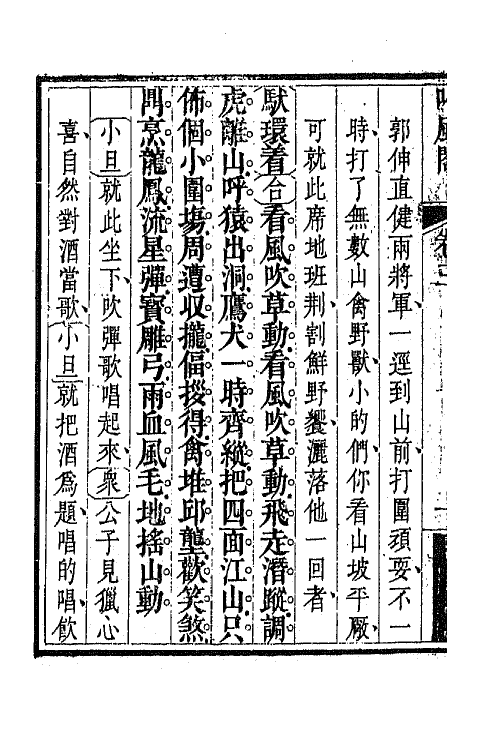 郭伸直健兩將軍一逕到山前打圍頑耍不一
時打了無數山禽野獸小的們你看山坡平厰
可就此席地班荆割鮮野饗灑落他一回者
馱環着合看風吹草動看風吹草動飛走潛蹤調
虎離山呼猿出洞鷹犬一時齊縱把四面江山只
佈個小圍塲周遭収攏偪拶得禽堆邱壟歡笑煞
鼎烹龍鳳流星彈寶雕弓雨血風毛地搖山動
小旦就此坐下吹彈歌唱起來衆公子見獵心
喜自然對酒當歌小旦就把酒爲題唱的唱飲